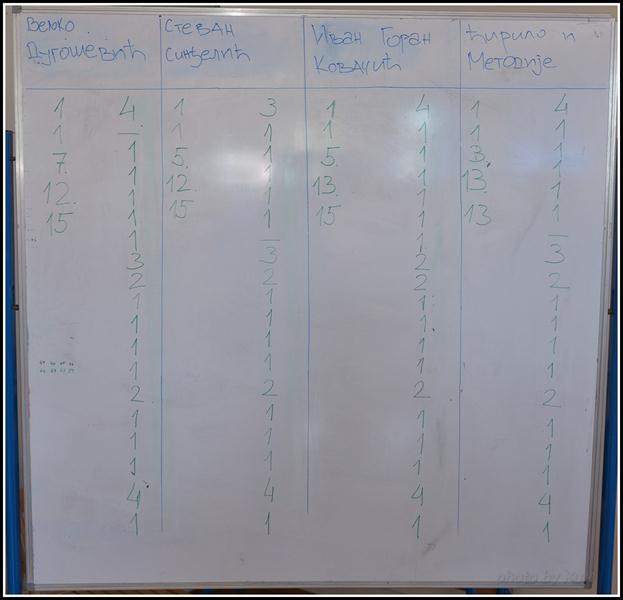 Вељко
Дугошевић
1 4
1 —
7. 1
12. 1
15 1
1
1
3
2
1
1
1
1
2
1
1
1
4
1
Стеван
Синђелић
1 3
1 1
5. 1
12. 1
15 1
1
3
2
1
1
1
1
2
1
1
1
4
1
Иван Горан
Ковачић
1 4
1 1
5. 1
13. 1
15 1
1
1
2
2
1
1
1
1
2
1
1
1
4
1
Ћирило и
Методије
1 4
1 1
3. 1
13. 1
13 1
1
3
2
1
1
1
1
2
1
1
1
4
1
photo by